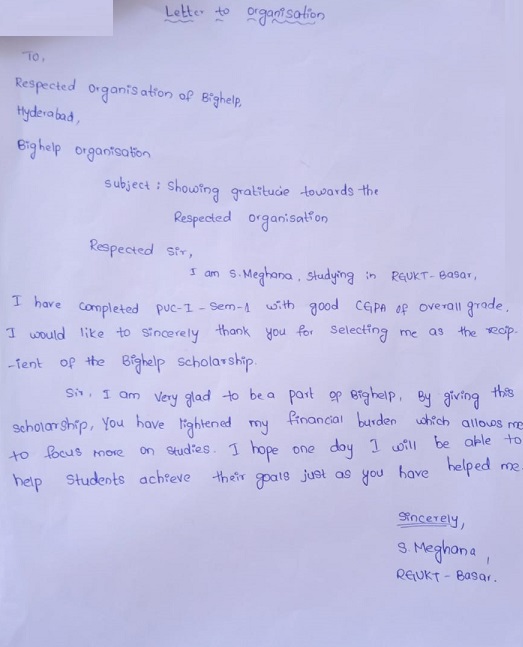 Letter to organisation
To,
Respected organisation of Bighelp,
Hyderabad,
Bighelp organisation
subject : Showing gratitude towards the
Respected organisation
Respected Sir,
I am S.Meghana, studying in RGUKT-Basar,
I have completed PUC-I-Sem-1 with good CGPA of overall grade.
I would like to sincerely thank you for selecting me as the recip-
-ient of the Bighelp scholarship.
Sir, I am very glad to be a part of Bighelp, By giving this
scholarship, You have lightened my financial burden which allows me
to focus more on studies. I hope one day I will be able to
help students achieve their goals just as you have helped me
Sincerely,
S.Meghana,
RGUKT-Basar.